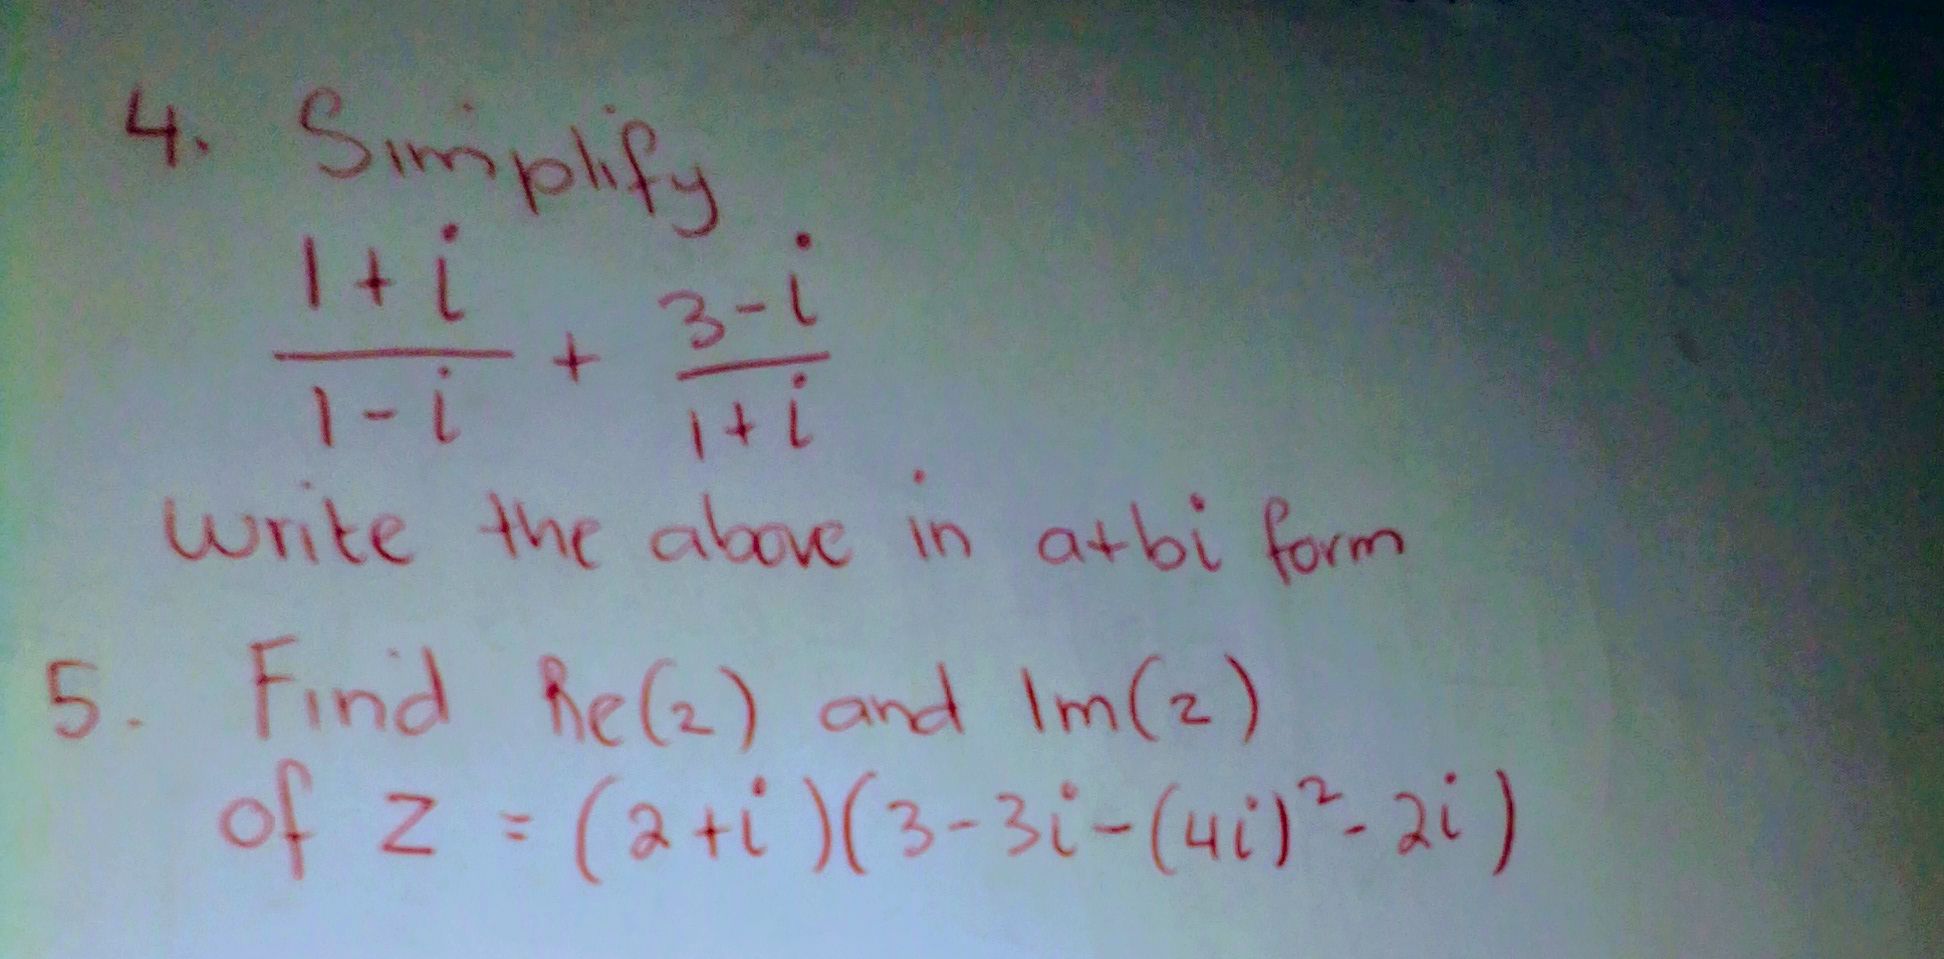 4. Simplify
1+i / 1-i + 3-i / 1+i
write the above in a+bi form
5. Find Re(z) and Im(z)
of z = (2+i)(3-3i-(4i)²-2i)